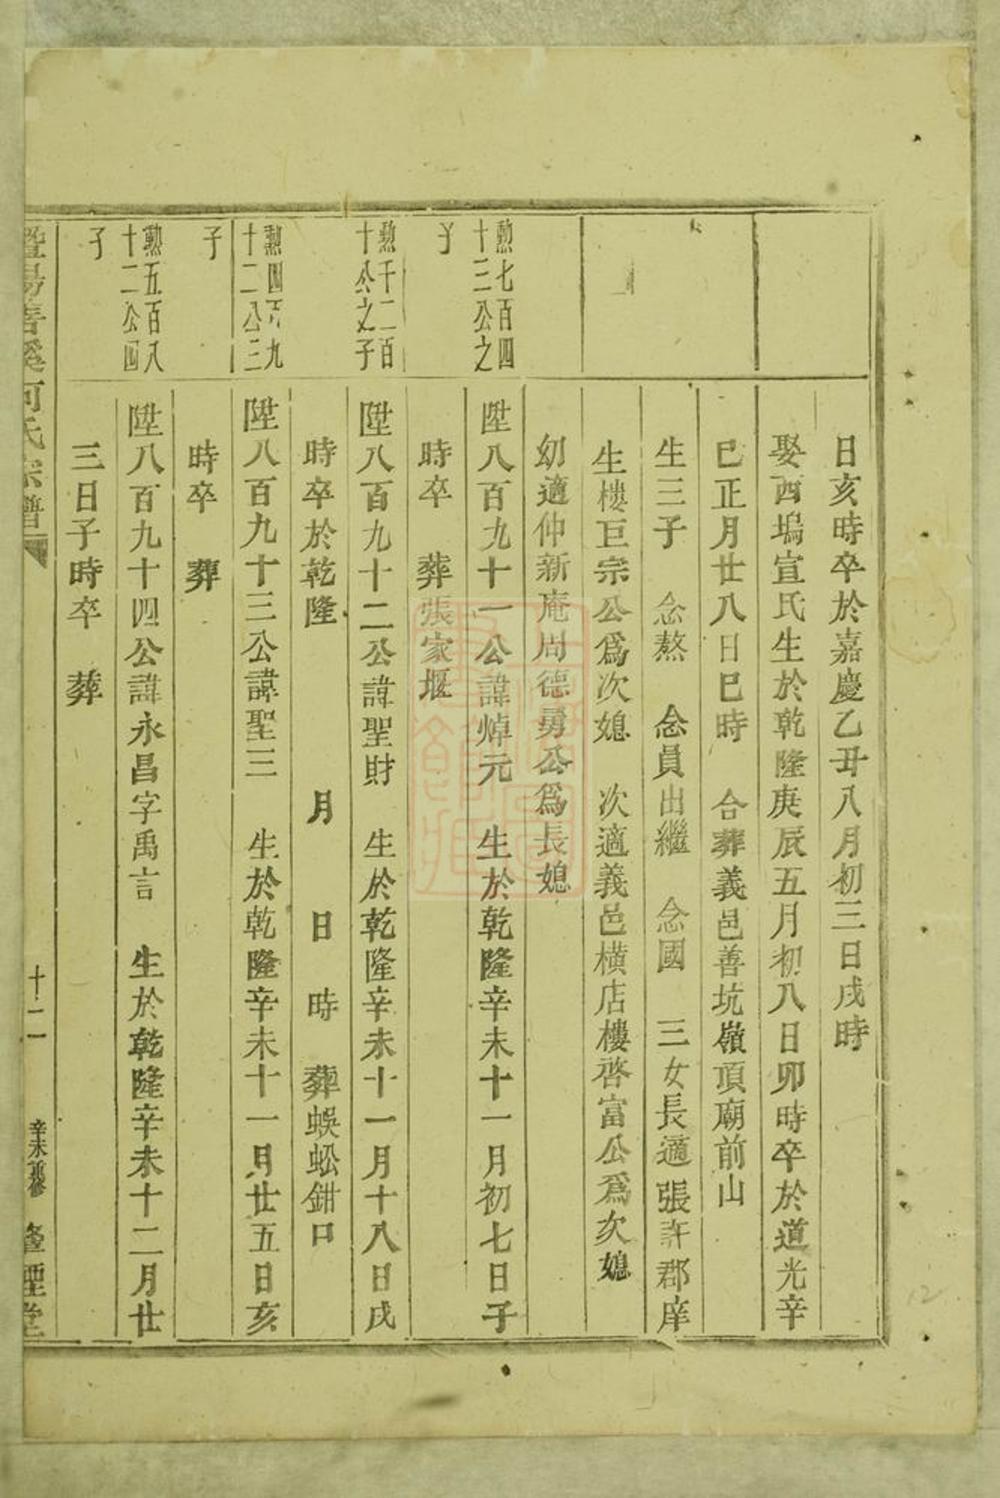 日亥時卒於嘉慶乙丑八月初三日戌時
娶西塢宣氏生於乾隆庚辰五月初八日卯時卒於道光辛
巳正月廿八日巳時　合葬義邑善坑嶺頂廟前山
生三子　念熬　念員出繼　念國　三女長適張許郡庠
生樓巨宗公爲次媳　次適義邑横店樓啓富公爲次媳
幼適仲新庵周德勇公爲長媳
勲七百四
十三公之
子
陞八百九十一公諱焯元　生於乾隆辛未十一月初七日子
時卒　葬張家堰
勲千二百
十公之子
陞八百九十二公諱聖財　生於乾隆辛未十一月十八日戌
時卒於乾隆　月　日　時　葬蜈蚣鉗口
勲四百九
十二公三
子
陞八百九十三公諱聖三　生於乾隆辛未十一月廿五日亥
時卒　葬
勲五百八
十二公四
子
陞八百九十四公諱永昌字禹言　生於乾隆辛未十二月廿
三日子時卒　葬
暨陽善溪何氏宗譜　十二　辛未重修